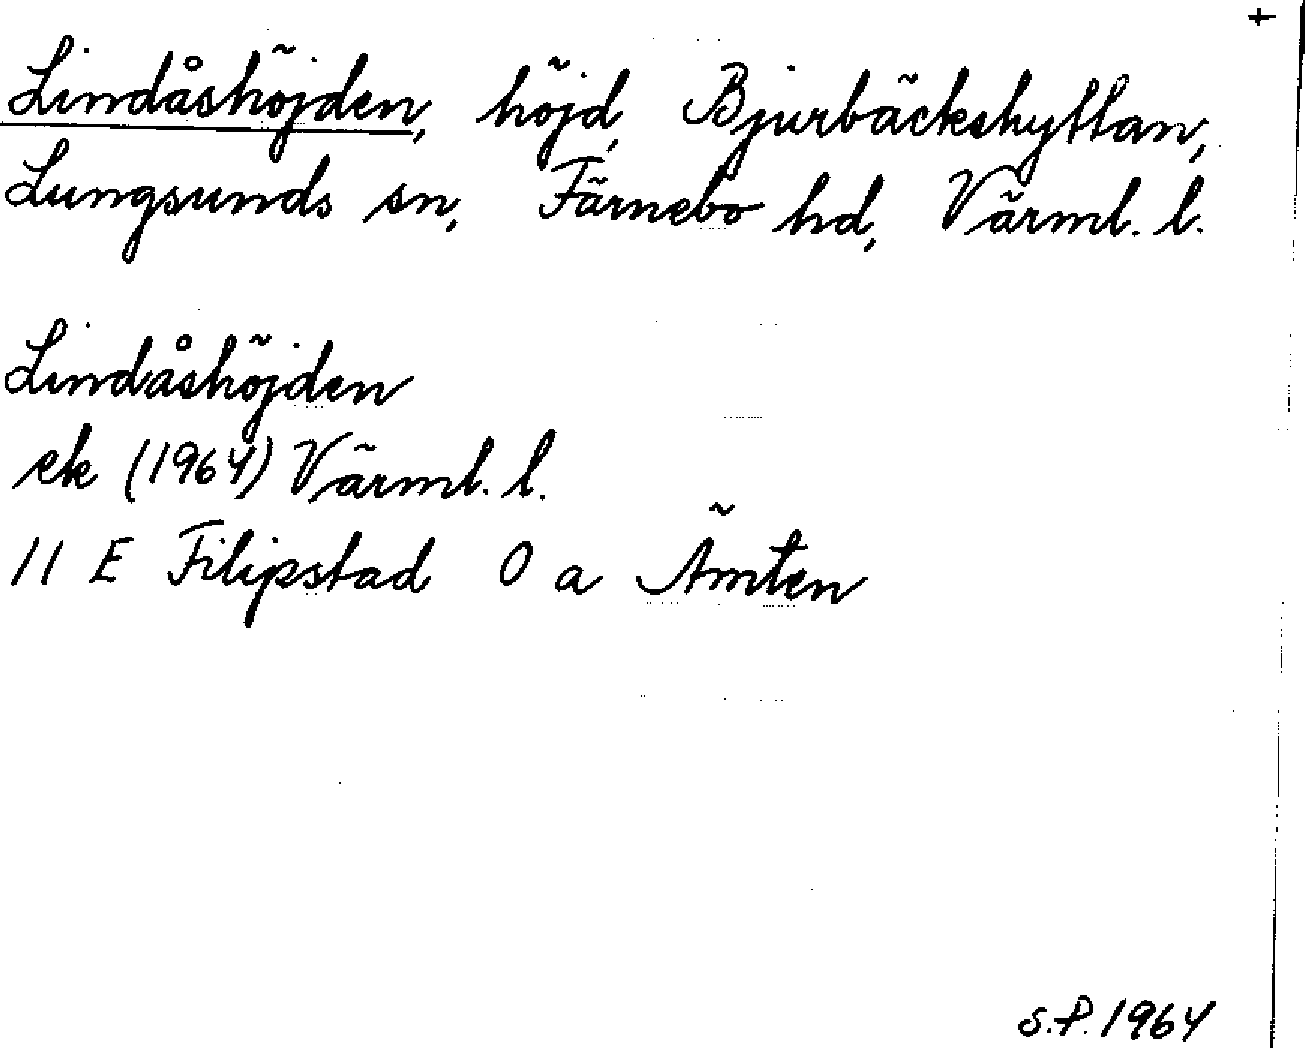 +
Lindåshöjden, höjd, Bjurbäckshyttan,
Lungsunds sn, Färnebo hd, Värml. l.
Lindåshöjden
ek (1964) Värml. l.
11 E Filipstad 0 a Ämten
S.P. 1964